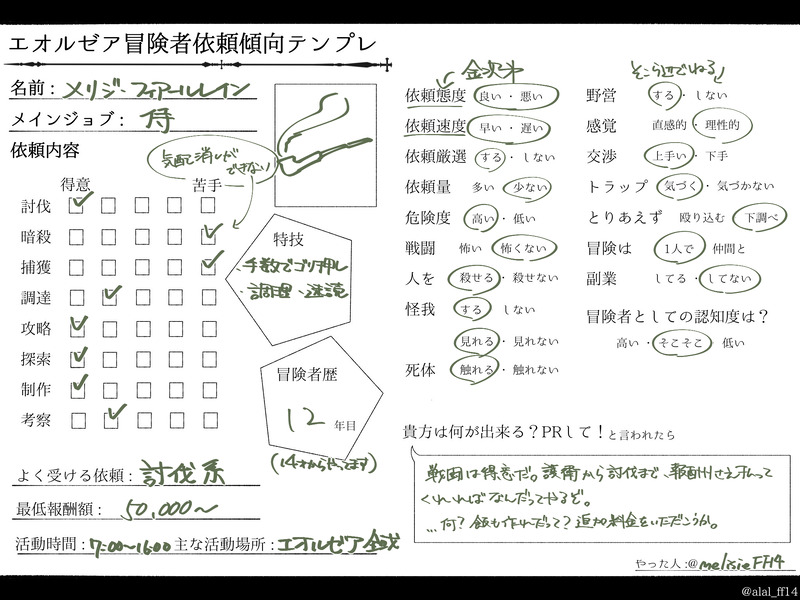 エオルゼア冒険者依頼傾向テンプレ
名前：メリジ・フェアールレイン
メインジョブ：侍
依頼内容
気配消しが
できない
得意 苦手
討伐
暗殺
捕獲
調達
攻略
探索
制作
考察
特技
手数でゴリ押し
調理、速読
冒険者歴
12 年目
(14才からやってます)
よく受ける依頼：討伐系
最低報酬額：50,000〜
活動時間：7:00〜16:00 主な活動場所：エオルゼア全域
金次第
依頼態度 良い・悪い
依頼速度 早い・遅い
依頼厳選 する・しない
依頼量 多い 少ない
危険度 高い・低い
戦闘 怖い 怖くない
人を 殺せる・殺せない
怪我 する しない
見れる・見れない
死体 触れる・触れない
そこら辺でねる
野営 する・しない
感覚 直感的・理性的
交渉 上手い・下手
トラップ 気づく・気づかない
とりあえず 殴り込む 下調べ
冒険は 1人で 仲間と
副業 してる・してない
冒険者としての認知度は？
高い・そこそこ 低い
貴方は何が出来る？PRして！と言われたら
戦闘は得意だ。護衛から討伐まで、報酬さえ払って
くれればなんだってやるぞ。
…何？飯も作れだって？追加料金をいただこうか。
やった人：@melisieFF14
@alal_ff14